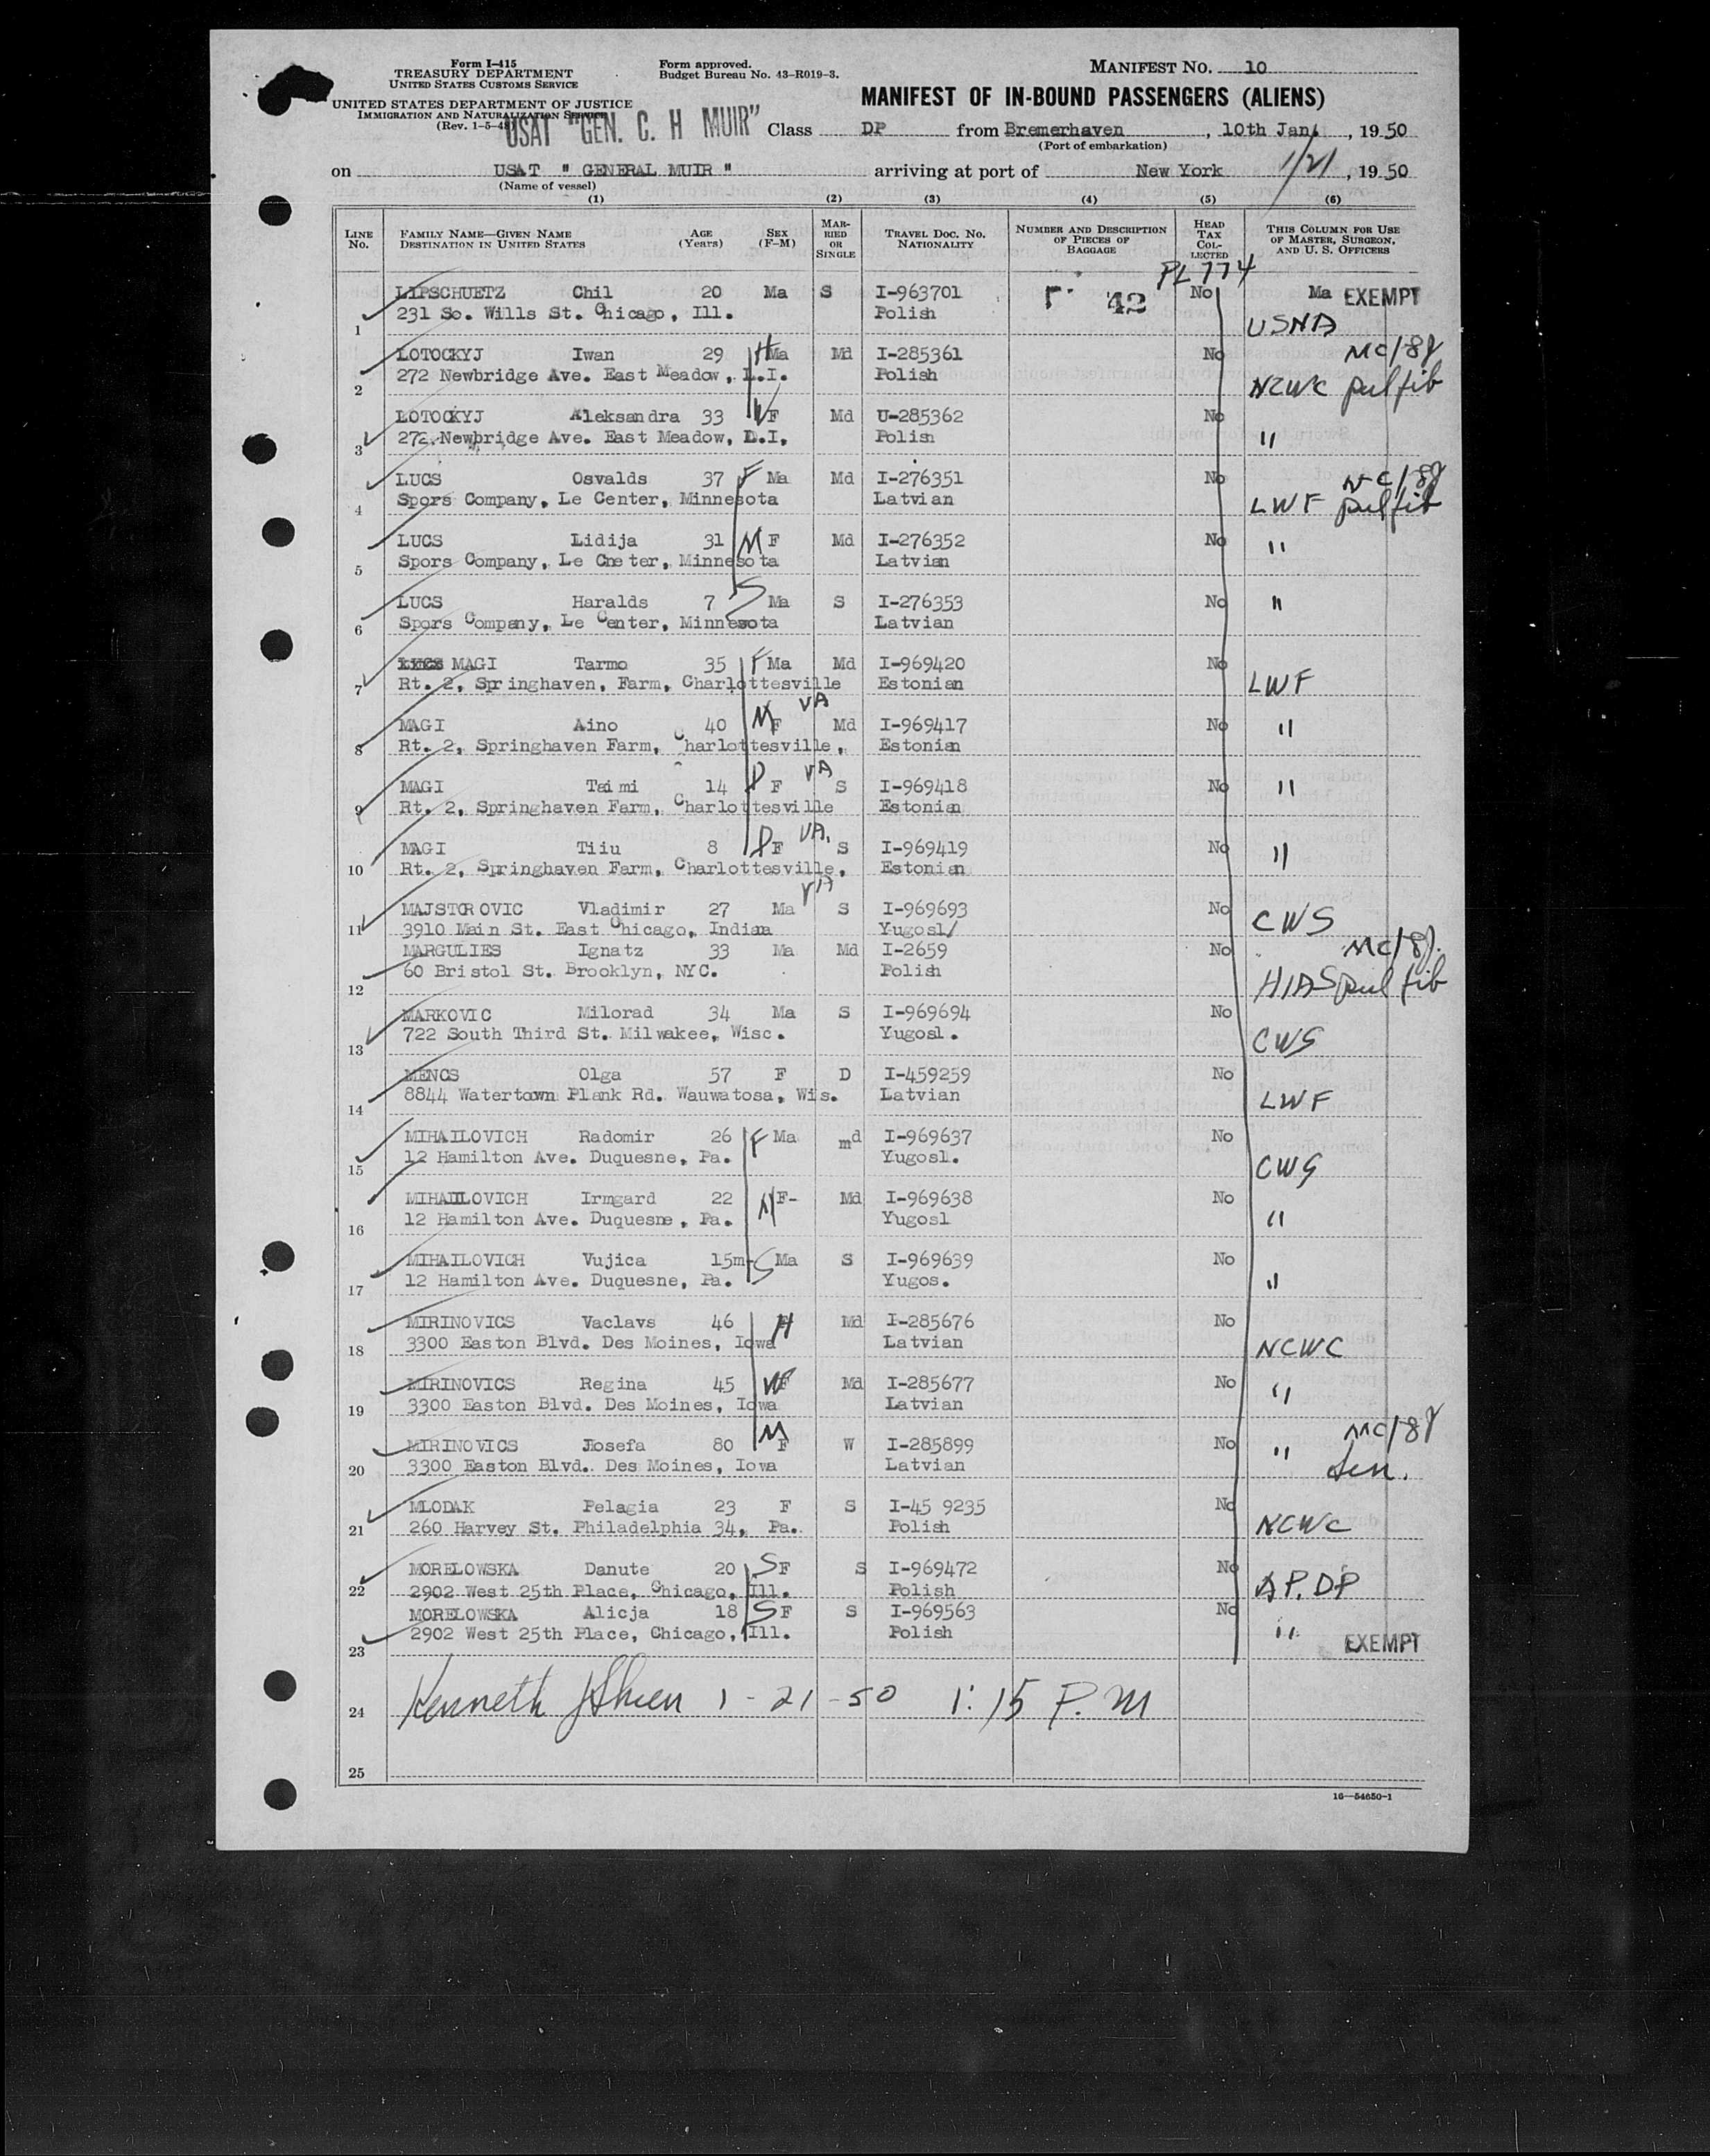 Form I-415
TREASURY DEPARTMENT
UNITED STATES CUSTOMS SERVICE
UNITED STATES DEPARTMENT OF JUSTICE
IMMIGRATION AND NATURALIZATION SERVICE
(Rev. 1-5-48)
Form approved.
Budget Bureau No. 43-R019-3.
MANIFEST NO. 10
MANIFEST OF IN-BOUND PASSENGERS (ALIENS)
USAT "GEN. C. H MUIR"
Class DP from Bremerhaven, 10th Jan., 1950
(Port of embarkation)
on USAT " GENERAL MUIR " arriving at port of New York 1/21, 1950
(Name of vessel)
(1) (2) (3) (4) (5) (6)
LINE No. FAMILY NAME—GIVEN NAME DESTINATION IN UNITED STATES AGE (Years) SEX (F-M) MARRIED OR SINGLE TRAVEL DOC. NO. NATIONALITY NUMBER AND DESCRIPTION OF PIECES OF BAGGAGE HEAD TAX COLLECTED THIS COLUMN FOR USE OF MASTER, SURGEON, AND U. S. OFFICERS
PL 774
LIPSCHUETZ Chil 20 Ma S I-963701 42 No Ma EXEMPT
1 231 So. Wills St. Chicago, Ill. Polish USNA
LOTOCKYJ Iwan 29 H Ma Md I-285361 No MC/8g
2 272 Newbridge Ave. East Meadow, L.I. Polish NCWC pul fib
LOTOCKYJ Aleksandra 33 W F Md U-285362 No
3 272 Newbridge Ave. East Meadow, L.I, Polish "
LUCS Osvalds 37 F Ma Md I-276351 No MC/8g
4 Spors Company, Le Center, Minnesota Latvian LWF pul fib
LUCS Lidija 31 M F Md I-276352 No
5 Spors Company, Le Cneter, Minnesota Latvian "
LUCS Haralds 7 S Ma S I-276353 No "
6 Spors Company, Le Center, Minnesota Latvian
MAGI Tarmo 35 F Ma Md I-969420 No
7 Rt. 2, Springhaven, Farm, Charlottesville VA Estonian LWF
MAGI Aino 40 M F Md I-969417 No "
8 Rt. 2, Springhaven Farm, Charlottesville, VA Estonian
MAGI Taimi 14 D F S I-969418 No "
9 Rt. 2, Springhaven Farm, Charlottesville VA. Estonian
MAGI Tiiu 8 D F S I-969419 No "
10 Rt. 2, Springhaven Farm, Charlottesville, VA Estonian
MAJSTOROVIC Vladimir 27 Ma S I-969693 No
11 3910 Main St. East Chicago, Indiana Yugosl/ CWS
MARGULIES Ignatz 33 Ma Md I-2659 No MC/8g.
12 60 Bristol St. Brooklyn, NYC. Polish HIAS pul fib
MARKOVIC Milorad 34 Ma S I-969694 No
13 722 South Third St. Milwakee, Wisc. Yugosl. CWS
MENCS Olga 57 F D I-459259 No
14 8844 Watertown Plank Rd. Wauwatosa, Wis. Latvian LWF
MIHAILOVICH Radomir 26 F Ma md I-969637 No
15 12 Hamilton Ave. Duquesne, Pa. Yugosl. CWS
MIHAILOVICH Irmgard 22 M F- Md I-969638 No
16 12 Hamilton Ave. Duquesne, Pa. Yugosl "
MIHAILOVICH Vujica 15m- S Ma S I-969639 No
17 12 Hamilton Ave. Duquesne, Pa. Yugos. "
MIRINOVICS Vaclavs 46 H Md I-285676 No
18 3300 Easton Blvd. Des Moines, Iowa Latvian NCWC
MIRINOVICS Regina 45 W F Md I-285677 No "
19 3300 Easton Blvd. Des Moines, Iowa Latvian
MIRINOVICS Josefa 80 M F W I-285899 No " MC/8g
20 3300 Easton Blvd. Des Moines, Iowa Latvian Sen.
MLODAK Pelagia 23 F S I-45 9235 No
21 260 Harvey St. Philadelphia 34, Pa. Polish NCWC
MORELOWSKA Danute 20 S F S I-969472 No
22 2902 West 25th Place, Chicago, Ill. Polish AP.DP
MORELOWSKA Alicja 18 S F S I-969563 No "
23 2902 West 25th Place, Chicago, Ill. Polish EXEMPT
24 Kenneth 1-21-50 1:15 P.M
25
16—54650-1